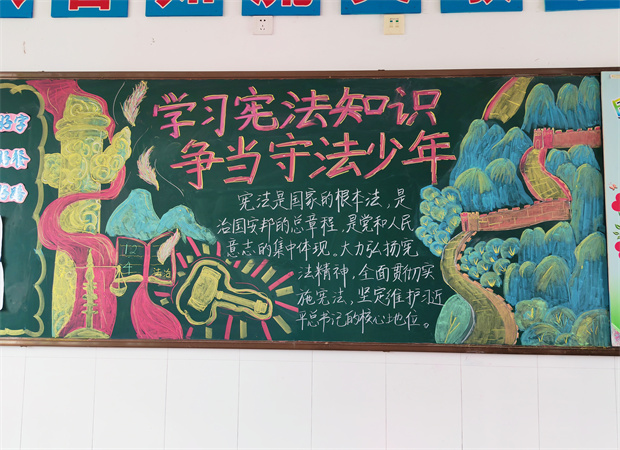 学习宪法知识
争当守法少年
宪法是国家的根本法，是
治国安邦的总章程，是党和人民
意志的集中体现。大力弘扬宪
法精神，全面贯彻实
施宪法，坚定维护习近
平总书记的核心地位。